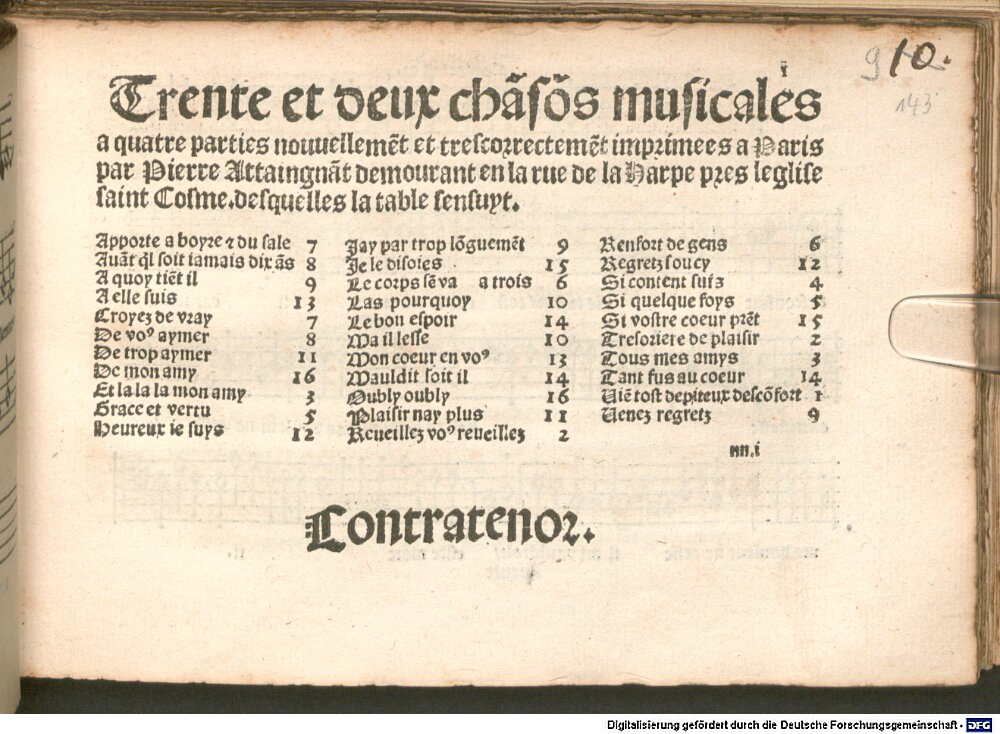 i
9 10.
143
Trente et deux chãſõs muſicales
a quatre parties nouuellemẽt et treſcorrectemẽt imprimees a Paris
par Pierre Attaingnãt demourant en la rue de la Harpe pres legliſe
ſaint Coſme. deſquelles la table ſenſuyt.
Apporte a boyre ⁊ du ſale 7
Auãt ql ſoit iamais dix ãs 8
A quoy tiẽt il 9
A elle ſuis 13
Croyez de vray 7
De voꝰ aymer 8
De trop aymer 11
De mon amy 16
Et la la la mon amy 3
Grace et vertu 5
Heureux ie ſuys 12
Jay par trop lõguemẽt 9
Je le diſoies 15
Le corps ſẽ va a trois 6
Las pourquoy 10
Le bon eſpoir 14
Ma il leſſe 10
Mon coeur en voꝰ 13
Mauldit ſoit il 14
Oubly oubly 16
Plaiſir nay plus 11
Reueillez voꝰ reueillez 2
Renfort de gens 6
Regretz ſoucy 12
Si content ſuis 4
Si quelque foys 5
Si voſtre coeur prẽt 15
Treſoriere de plaiſir 2
Tous mes amys 3
Tant fus au coeur 14
Viẽ toſt depiteux deſcõfort 1
Venez regretz 9
nn.i
Contratenor.
Digitalisierung gefördert durch die Deutsche Forschungsgemeinschaft - DFG